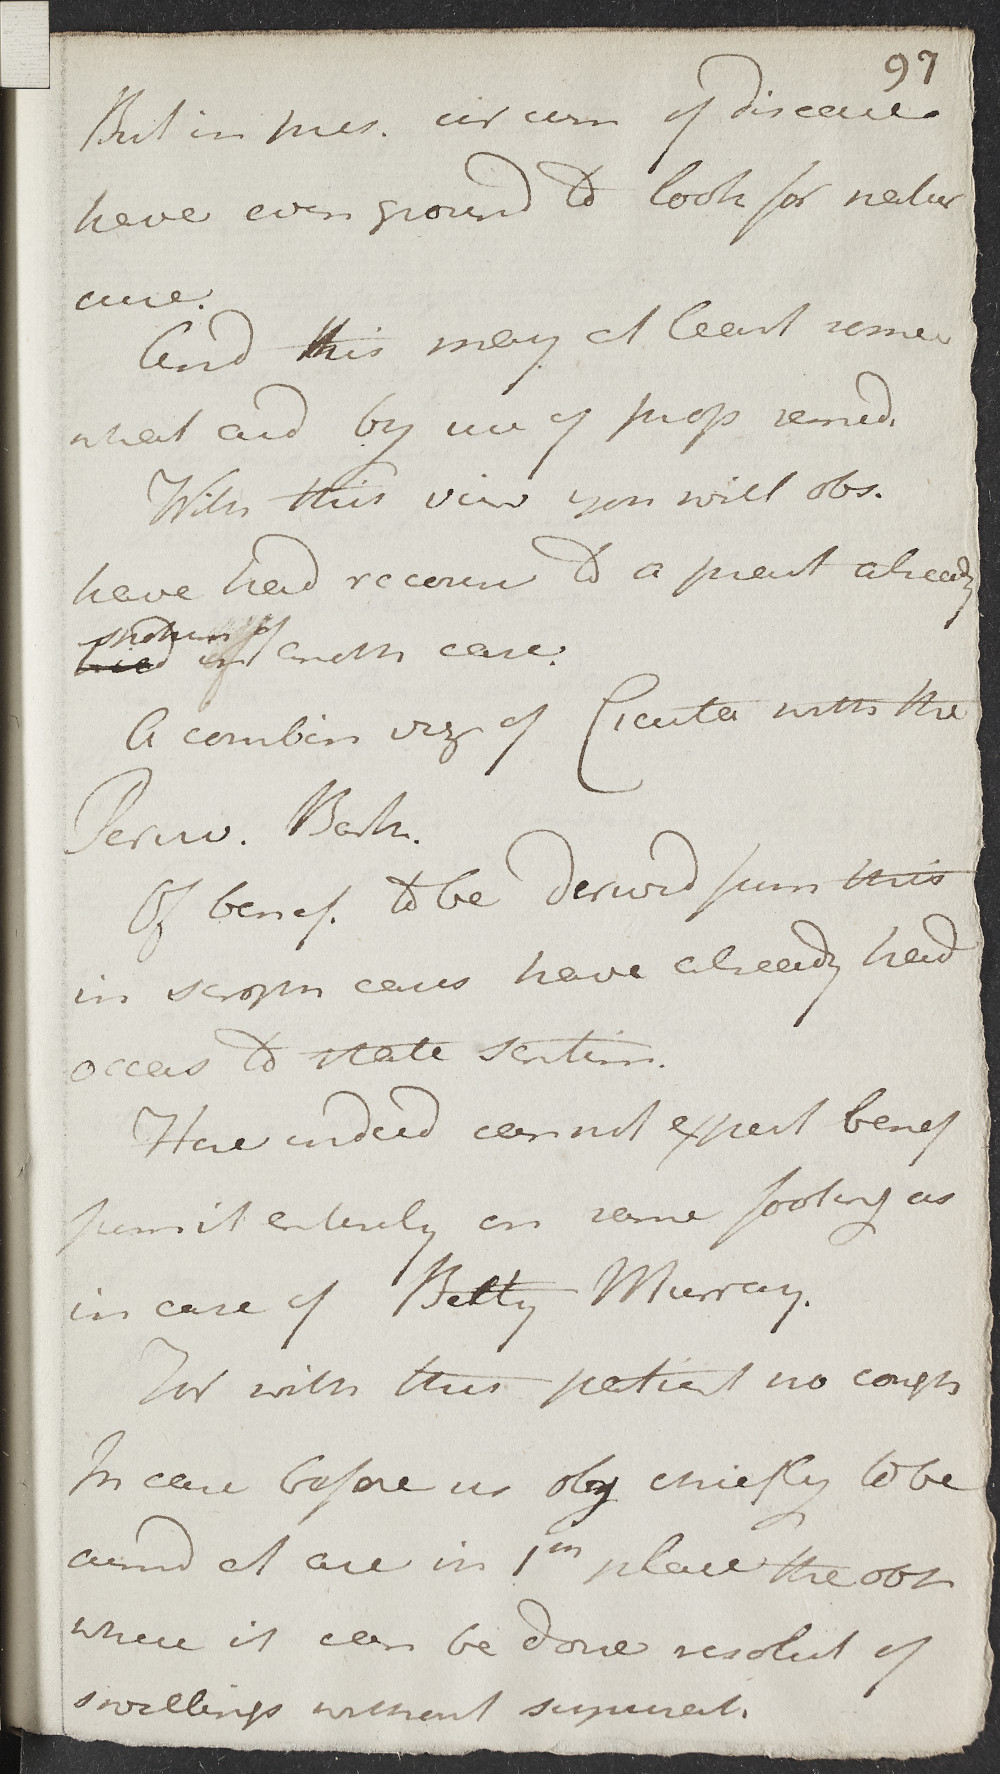 97
But in pres. circum of disease
have even ground to look for natur
cure.
And this may at least some
what aid by use of prop remed.
With this view you will obs.
have had recourse to a pract already
tried in anoth case.
A combin viz of Cicuta with the
Peruv. Bark.
Of benef. to be derived from this
in scroph cases have already had
occas to state sentim.
Here indeed cannot expect benef
from it entirely on same footing as
in case of Betty Murray.
For with this patient no cough
In case before us obj chiefly to be
aimd at are in 1m place the obt
where it can be done resolut of
swellings without suppurat.